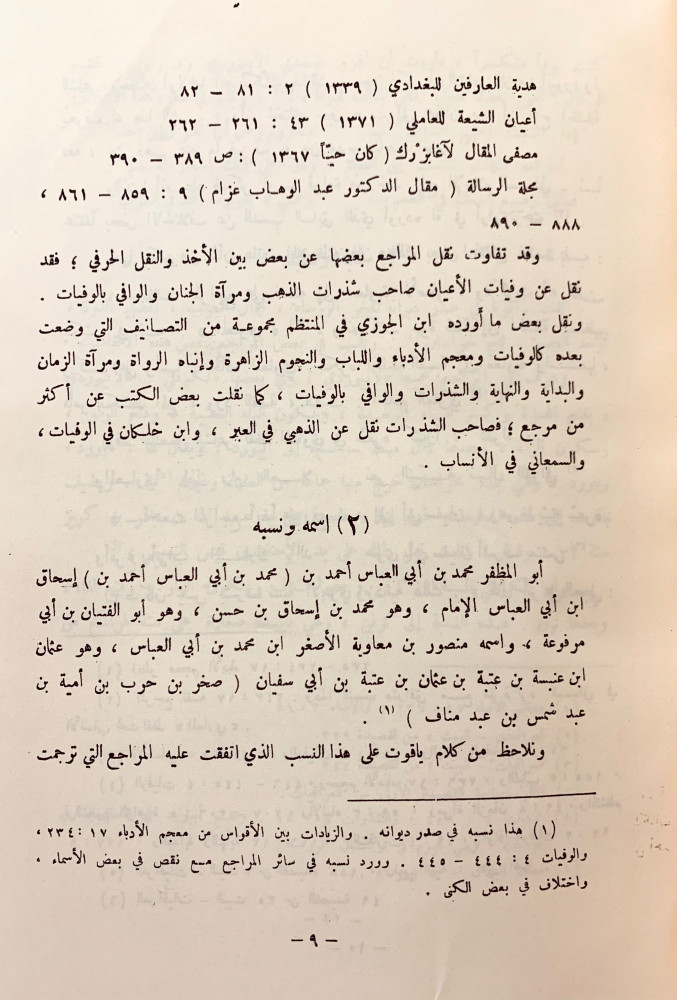 هدية العارفين للبغدادي ( ١٣٣٩ ) ٢ : ٨١ – ٨٢
أعيان الشيعة للعاملي ( ١٣٧١ ) ٤٣ : ٢٦١ – ٢٦٢
مصفى المقال لآغابزْرك ( كان حيّاً ١٣٦٧ ) : ص ٣٨٩ – ٣٩٠
مجلة الرسالة ( مقال الدكتور عبد الوهاب عزام ) ٩ : ٨٥٩ – ٨٦١ ،
٨٨٨ – ٨٩٠
وقد تفاوت نقل المراجع بعضها عن بعض بين الأخذ والنقل الحرفي ؛ فقد
نقل عن وفيات الأعيان صاحب شذرات الذهب ومرآة الجنان والوافي بالوفيات .
ونقل بعض ما أورده ابن الجوزي في المنتظم مجموعة من التصانيف التي وضعت
بعده كالوفيات ومعجم الأدباء واللباب والنجوم الزاهرة وإنباه الرواة ومرآة الزمان
والبداية والنهاية والشذرات والوافي بالوفيات ، كما نقلت بعض الكتب عن أكثر
من مرجع ؛ فصاحب الشذرات نقل عن الذهبي في العبر ، وابن خلكان في الوفيات ،
والسمعاني في الأنساب .
(٢) اسمه ونسبه
أبو المظفر محمد بن أبي العباس أحمد بن ( محمد بن أبي العباس أحمد بن ) إسحاق
ابن أبي العباس الإمام ، وهو محمد بن إسحاق بن حسن ، وهو أبو الفتيان بن أبي
مرفوعة ، واسمه منصور بن معاوية الأصغر ابن محمد بن أبي العباس ، وهو عثمان
ابن عنبسة بن عتبة بن عثمان بن عتبة بن أبي سفيان ( صخر بن حرب بن أمية بن
عبد شمس بن عبد مناف ) (١) .
ونلاحظ من كلام ياقوت على هذا النسب الذي اتفقت عليه المراجع التي ترجمت
(١) هذا نسبه في صدر ديوانه . والزيادات بين الأقواس من معجم الأدباء ١٧ : ٢٣٤ ،
والوفيات ٤ : ٤٤٤ – ٤٤٥ . وورد نسبه في سائر المراجع مع نقص في بعض الأسماء ،
واختلاف في بعض الكنى .
– ٩ –